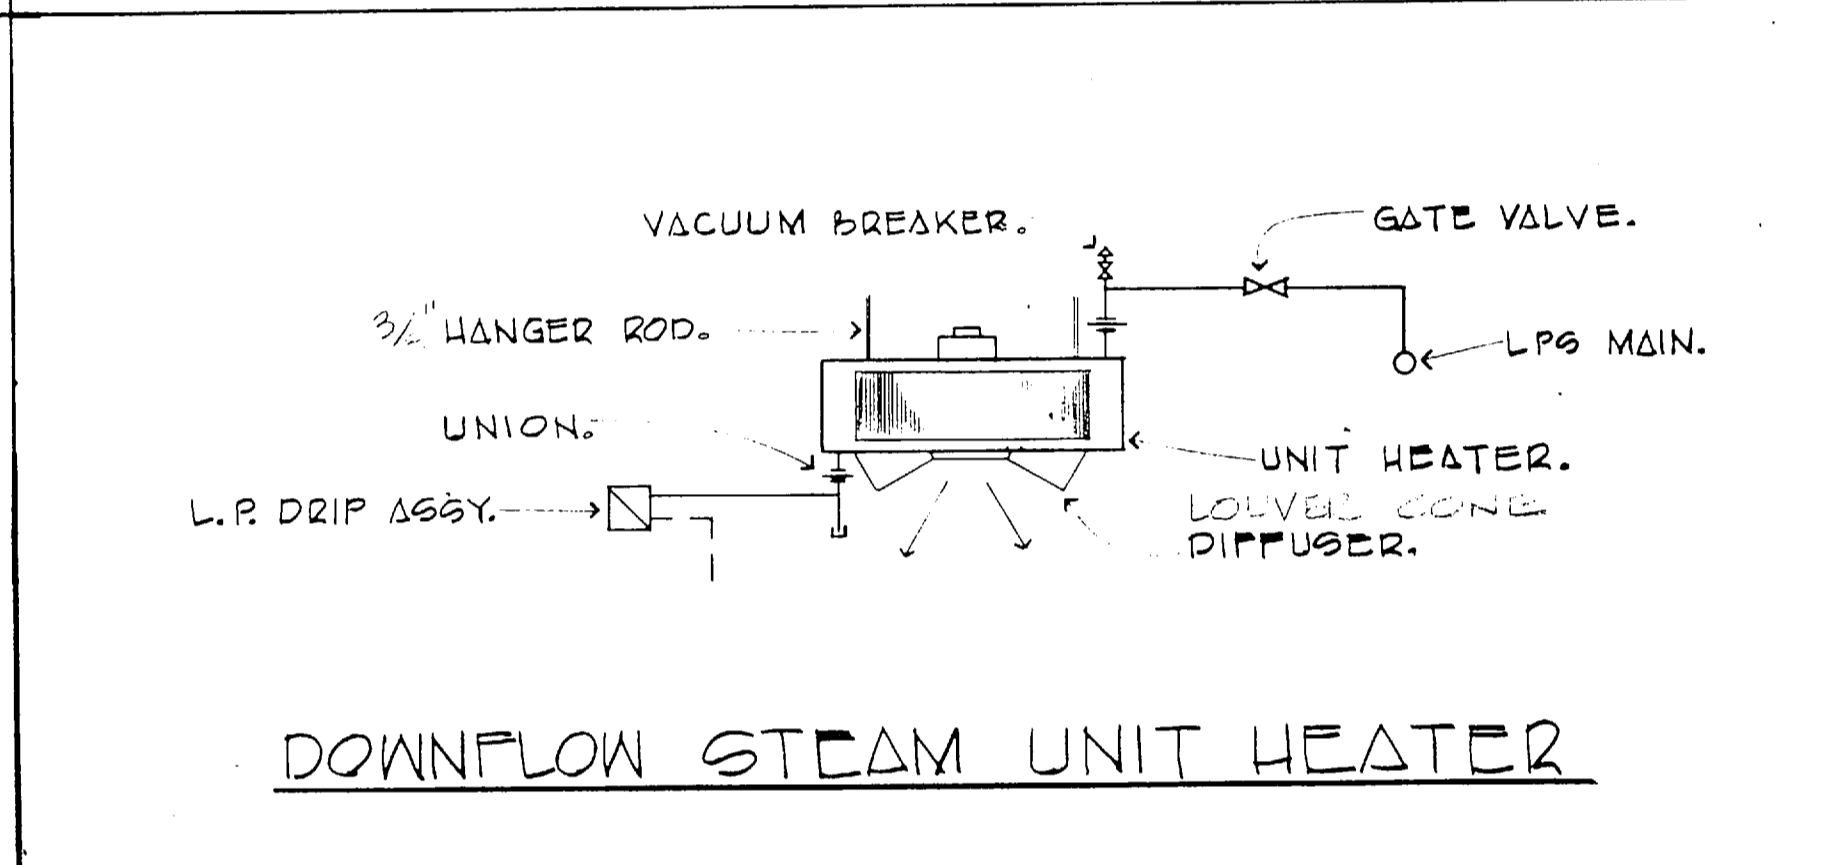 VACUUM BREAKER.
GATE VALVE.
HANGER ROD.
LPS MAIN.
UNION.
UNIT HEATER.
L.P. DRIP ASSY.
LOUVER CONE
DIFFUSER.
DOWNFLOW STEAM UNIT HEATER